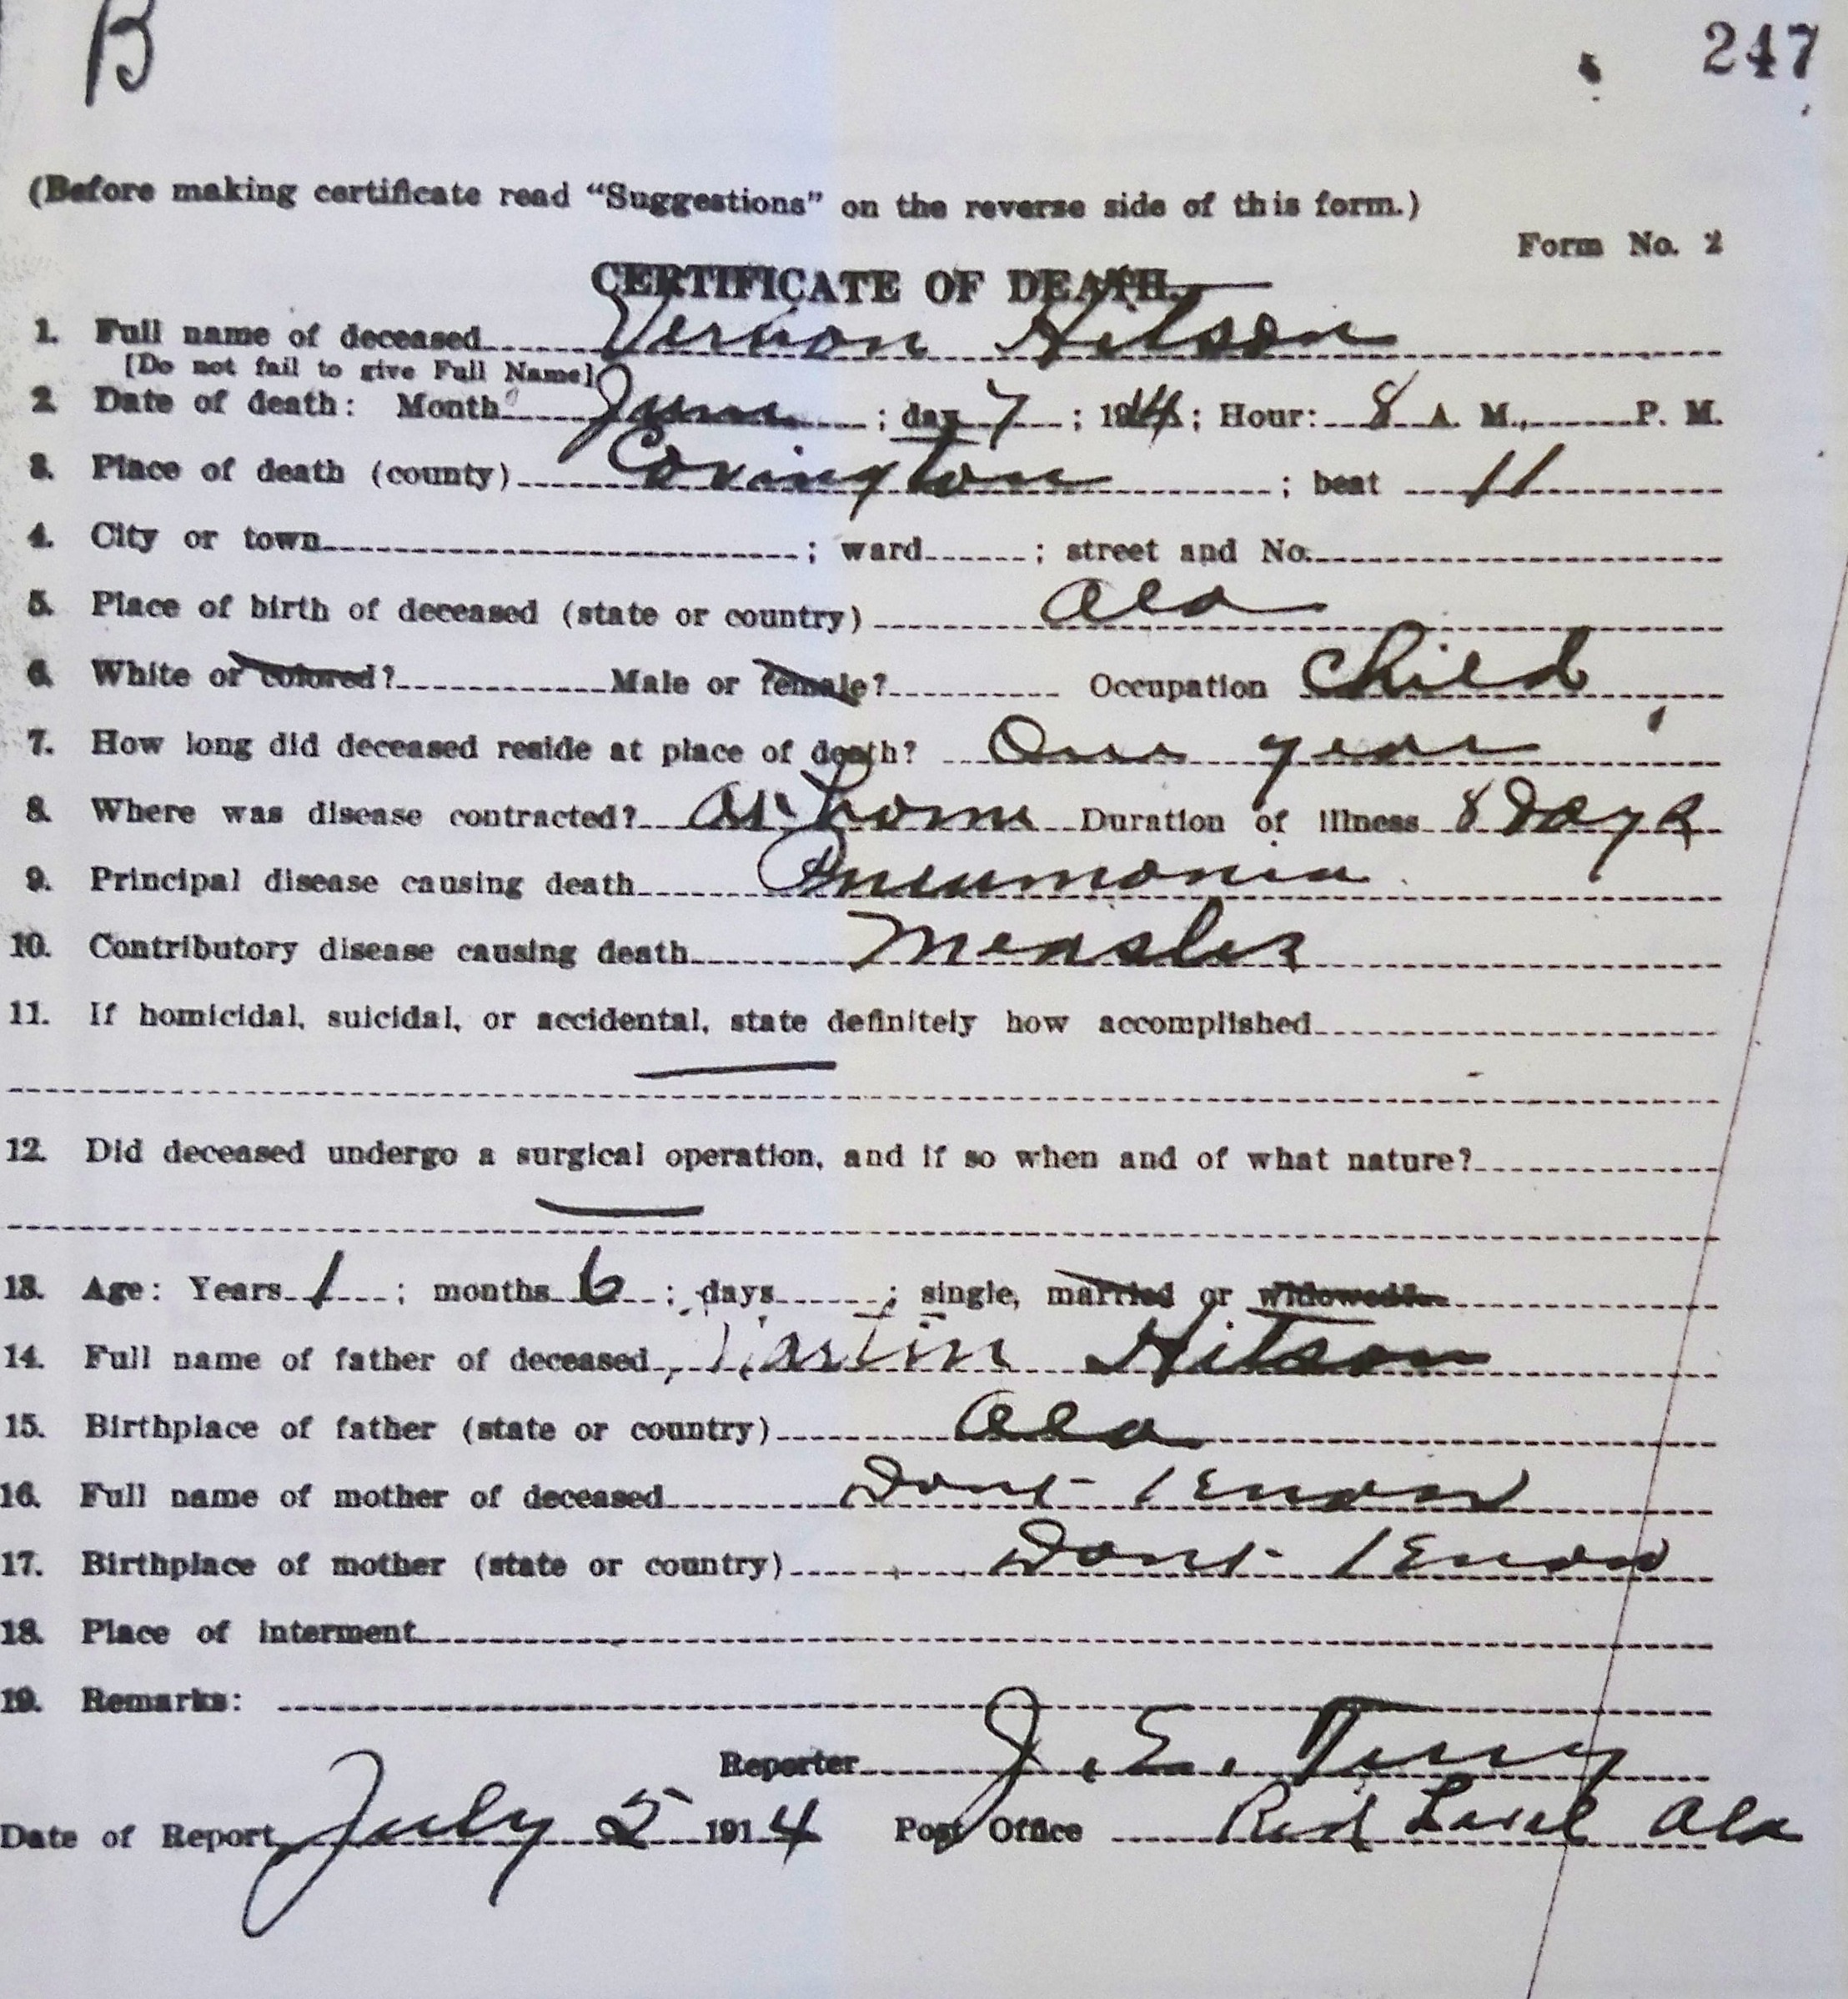 B
247
(Before making certificate read "Suggestions" on the reverse side of this form.)
Form No. 2
CERTIFICATE OF DEATH.
1. Full name of deceased Vernon Hitson
[Do not fail to give Full Name]
2. Date of death: Month June ; day 7 ; 1914 ; Hour: 8 A. M., P. M.
3. Place of death (county) Covington ; beat 11
4. City or town ; ward ; street and No.
5. Place of birth of deceased (state or country) Ala
6. White or colored? Male or female? Occupation Child
7. How long did deceased reside at place of death? One year
8. Where was disease contracted? At home Duration of illness 8 Days
9. Principal disease causing death Pneumonia
10. Contributory disease causing death Measles
11. If homicidal, suicidal, or accidental, state definitely how accomplished
12. Did deceased undergo a surgical operation, and if so when and of what nature?
13. Age: Years 1 ; months 6 ; days ; single, married or widowed
14. Full name of father of deceased Hitson
15. Birthplace of father (state or country) Ala
16. Full name of mother of deceased Dont Know
17. Birthplace of mother (state or country) Dont Know
18. Place of interment
19. Remarks:
Reporter J. E. Terry
Date of Report July 5 1914 Post Office Red Level Ala